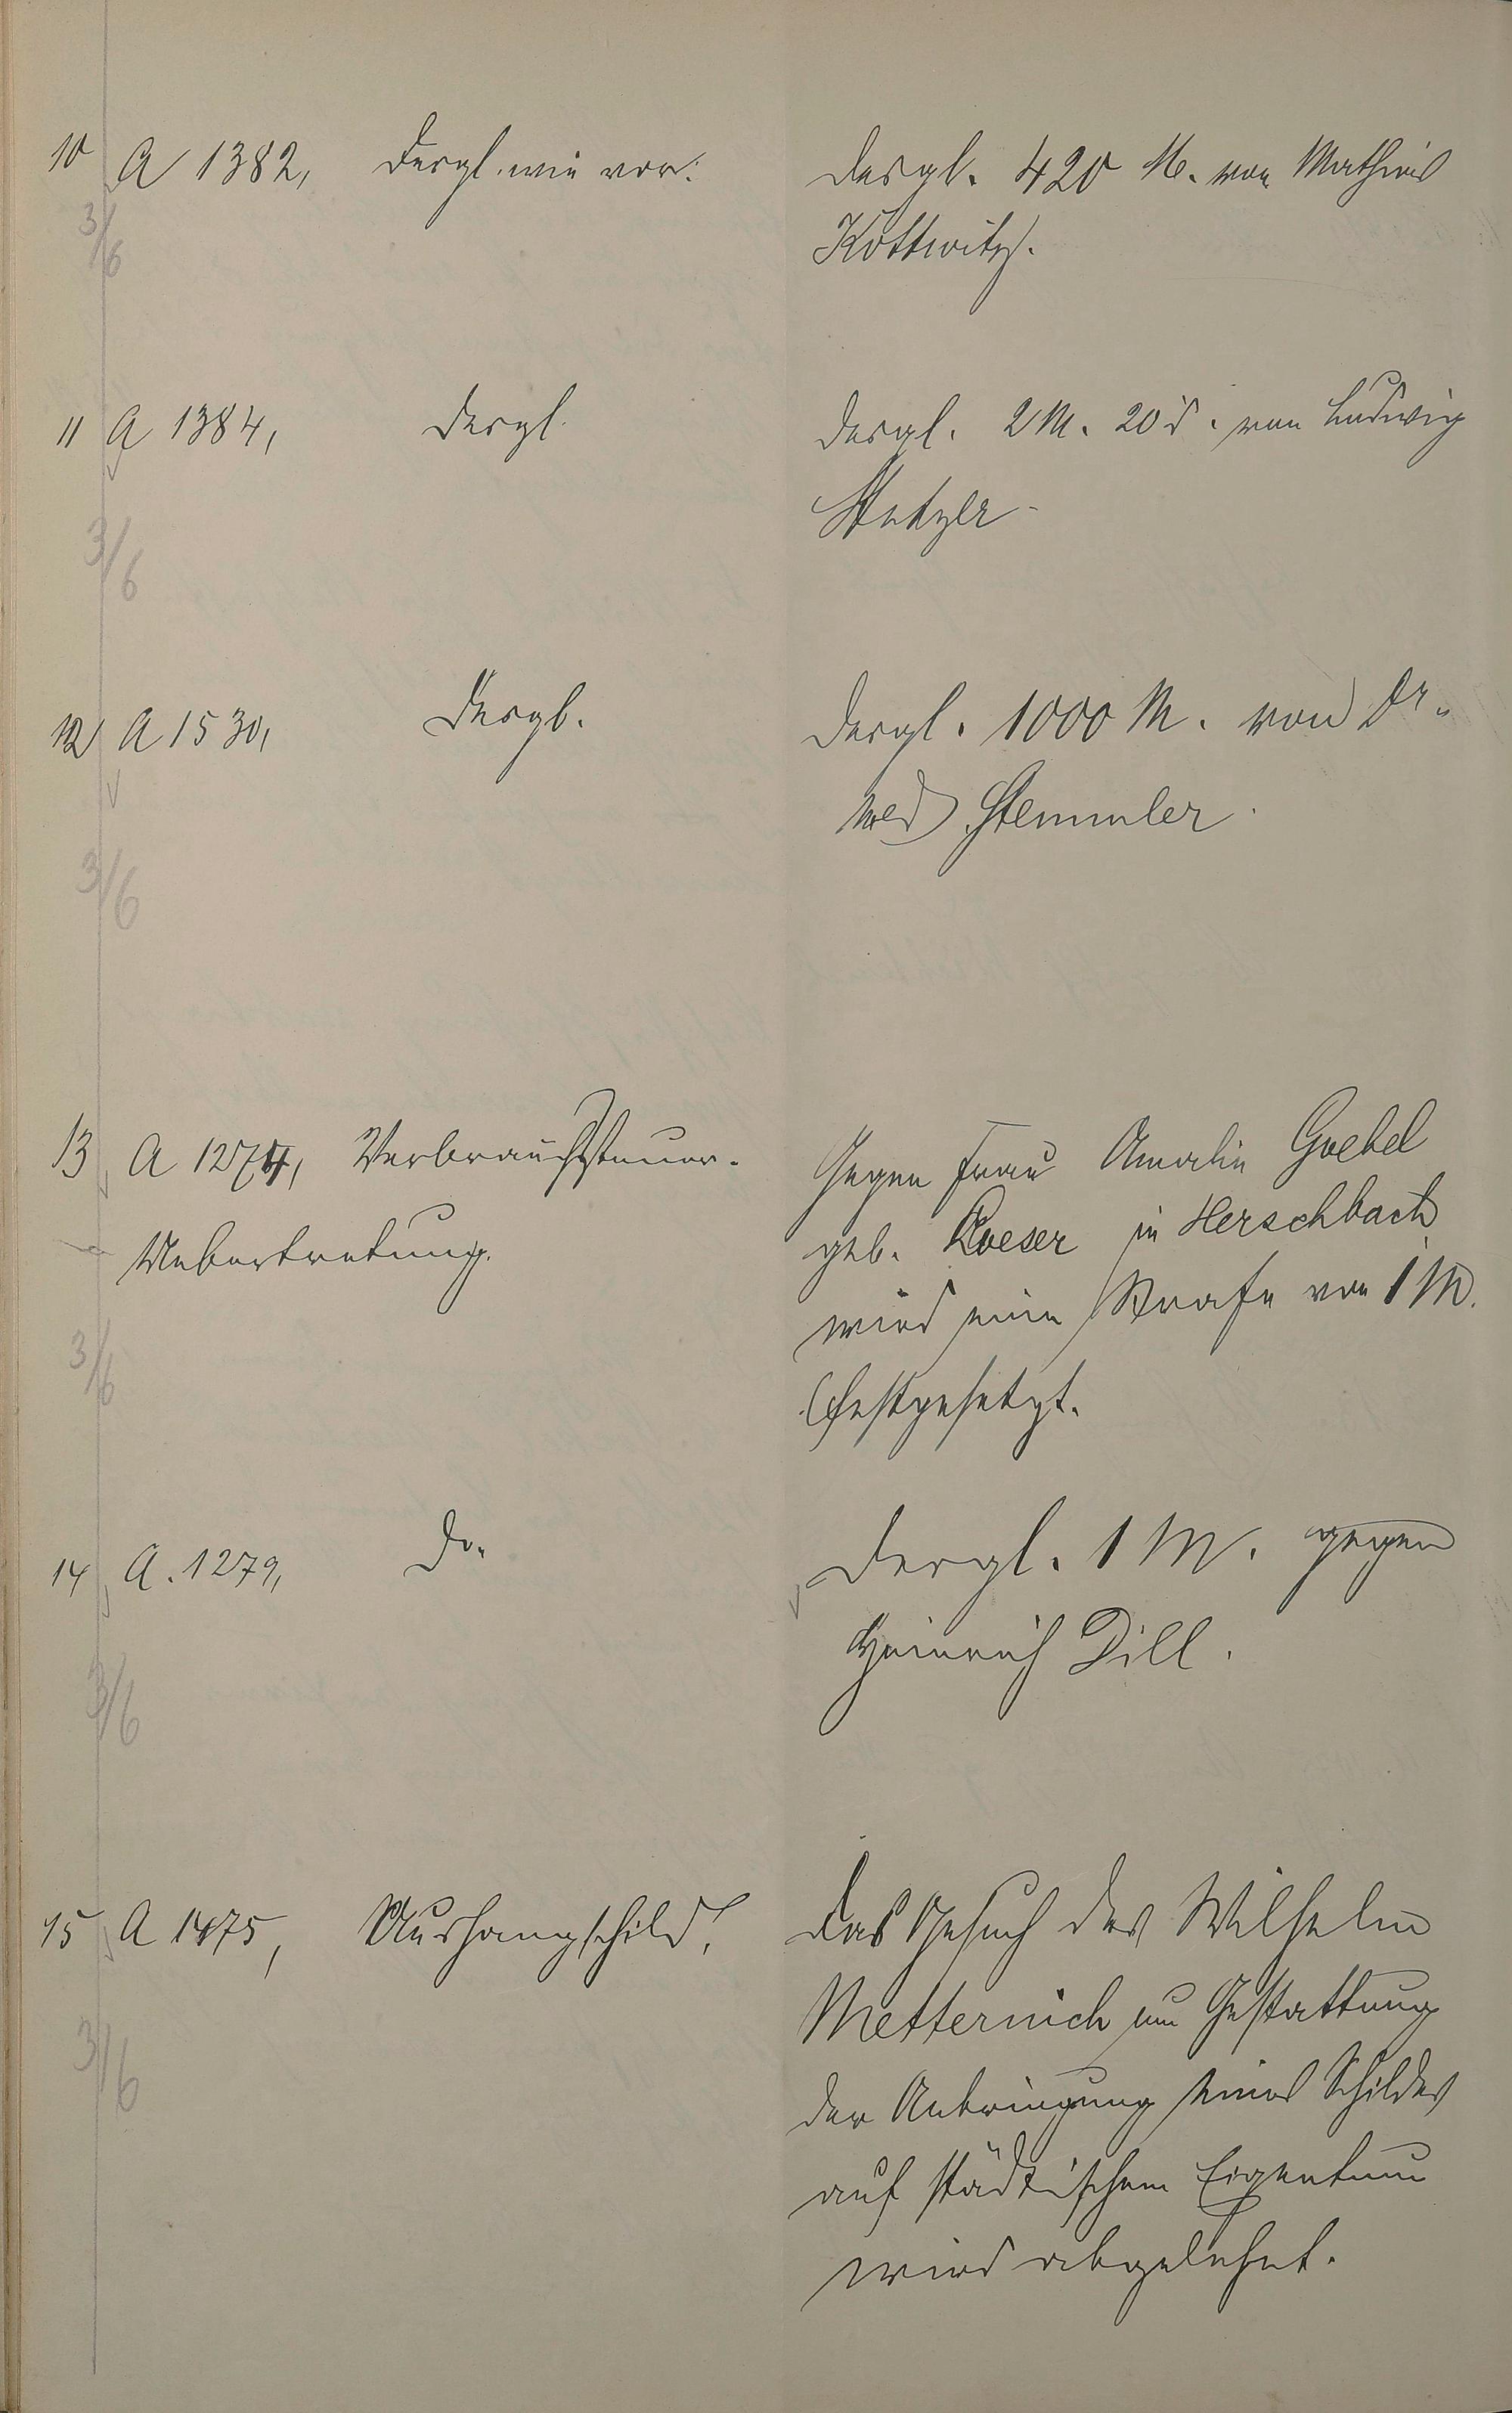 10 A 1382, Dergl. wie vor.
Desgl. 420 M. von Mathias
Kottwitz.
3/6
11 A 1384, Dergl.
Dergl. 2 M. 20 d. von Ludwig
3/6
12 A 1530, Desgl.
Dergl. 1000 M. von Dr.
med Stemmler.
3/6
13 A 1274, Verbrauchssteuer-
Uebertretung.
Gegen Frau Amalie Goebel
geb. Roeser in Herschbach
wird eine Strafe von 1 M.
festgesetzt.
3/6
14 A. 1279, Do.
Dergl. 1 M. gegen
Heinrich Dill.
3/6
15 A 1475, Aushangschild.
Das Gesuch des Wilhelm
Metternich um Gestattung
der Anbringung eines Schildes
auf städtischem Eigentum
wird abgelehnt.
3/6